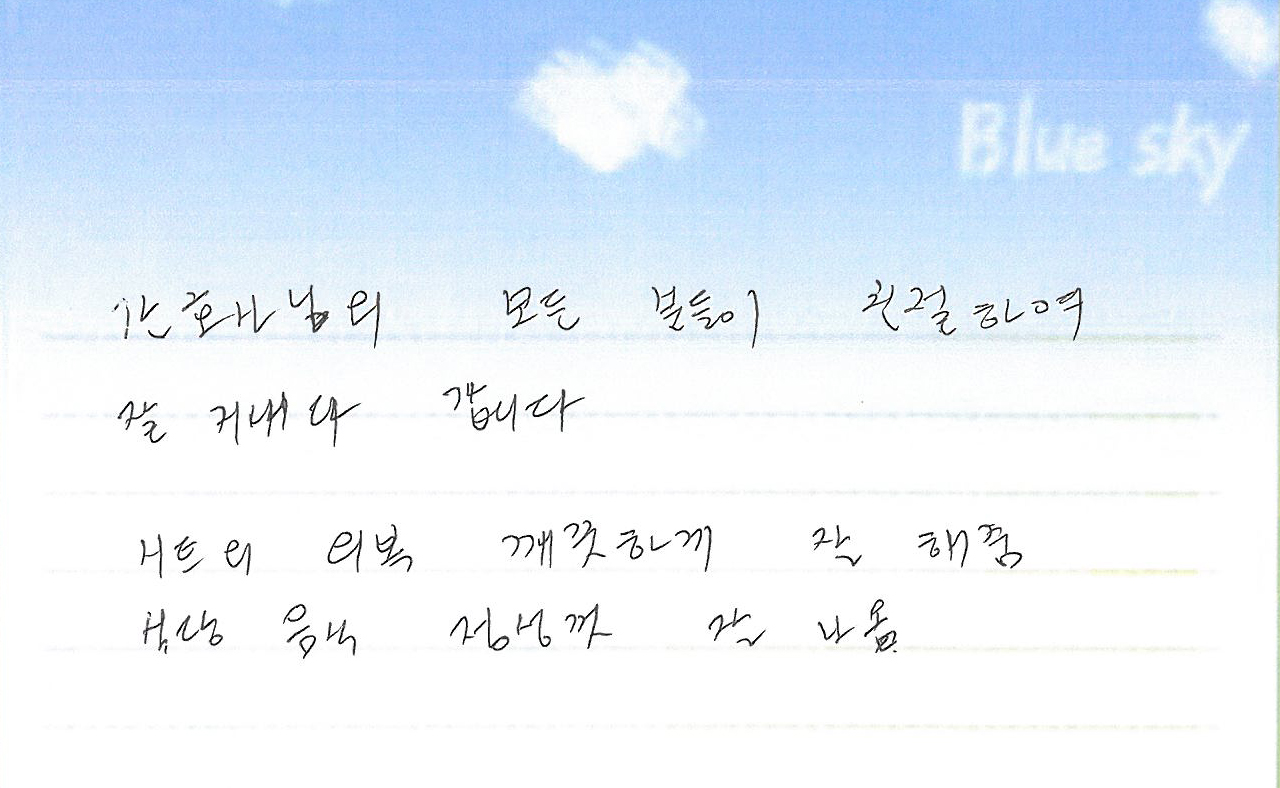 Blue sky
간호사님의 모든 분들이 친절하여
잘 지내다 갑니다
시트의 의복 깨끗하게 잘 해줌
식당 음식 정성껏 잘 나옴